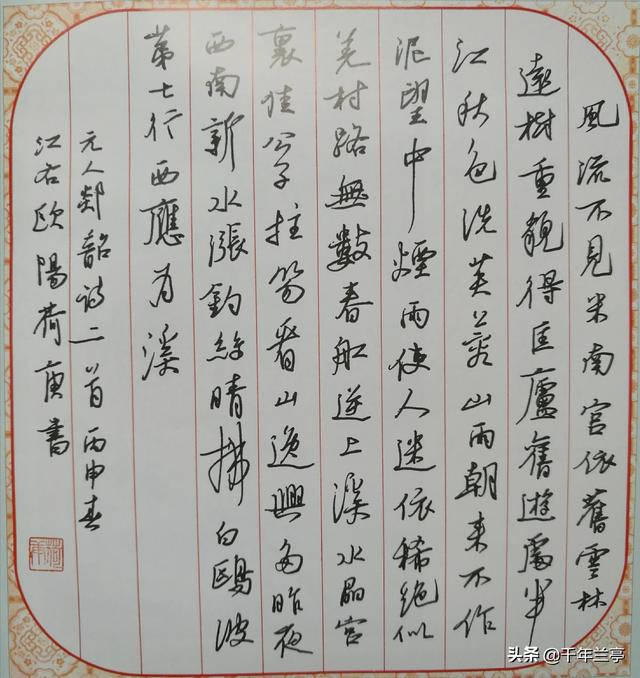 風流不見米南宫依舊雲林
遠樹重貌得匡廬舊遊處半
江秋色洗芙蓉山雨朝来不作
泥望中煙雨使人迷依稀绝似
羌村路無數春船逆上溪水晶宫
裏佳公子拄笏看山逸興多昨夜
西南新水漲釣絲晴拂白鷗波
第七行西應为溪
元人郯韶诗二首丙申春
江右欧陽荷庚書
头条 @千年兰亭